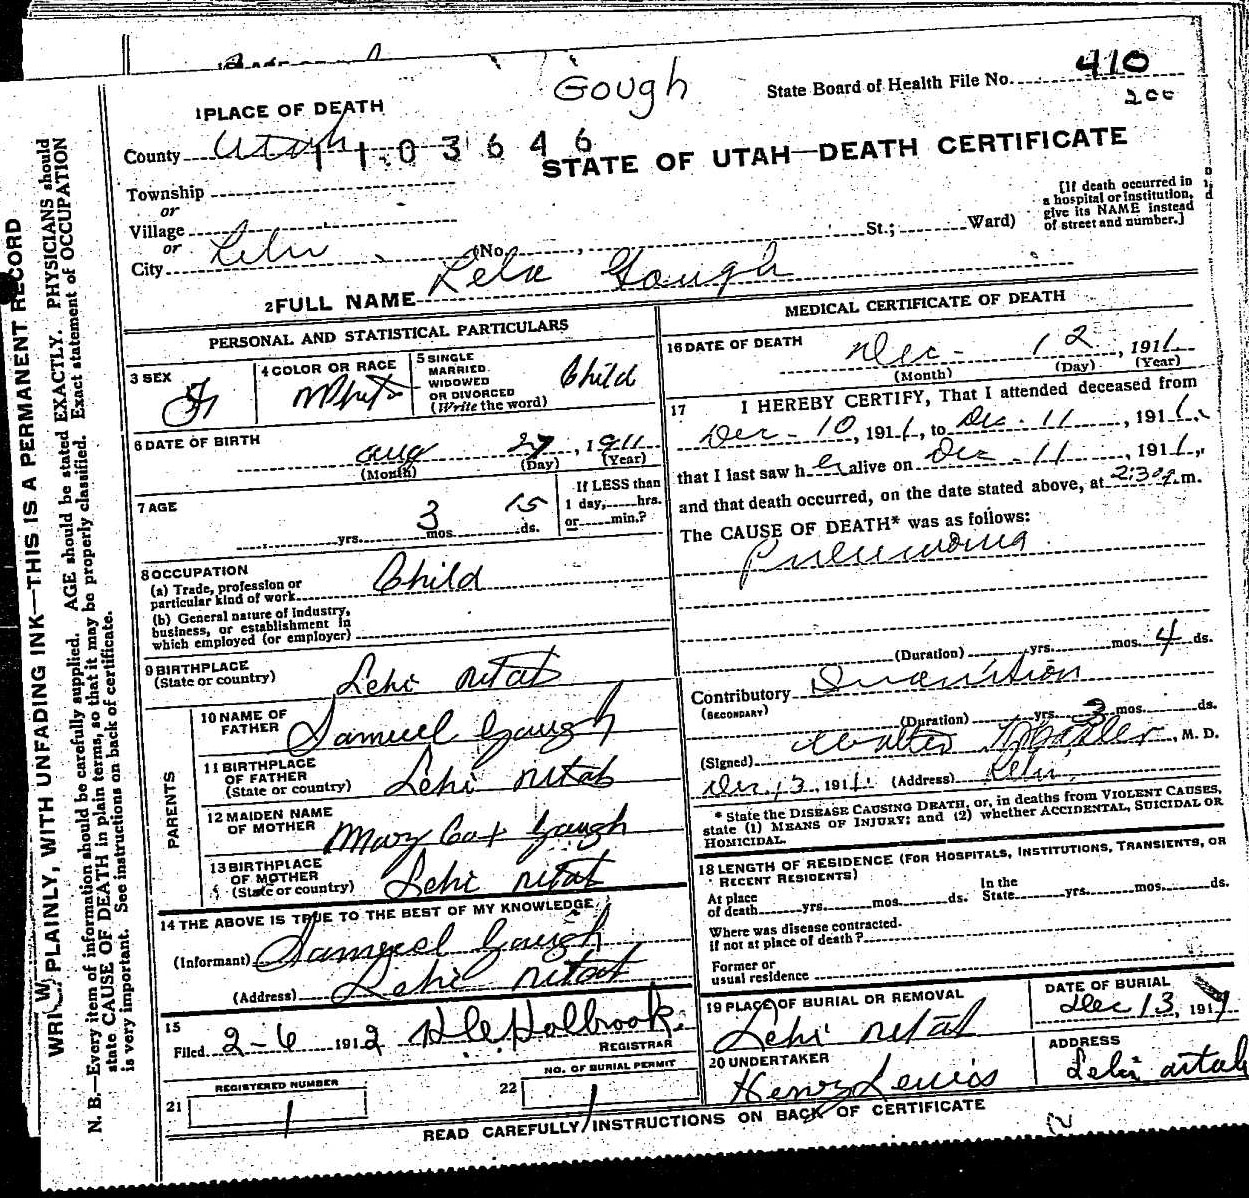 Gough
State Board of Health File No. 410
200
1 PLACE OF DEATH
County Utah
1 1 0 3 6 4 6
STATE OF UTAH—DEATH CERTIFICATE
Township
or
Village
or
City Lehi
(No. St.; Ward)
[If death occurred in
a hospital or institution,
give its NAME instead
of street and number.]
2 FULL NAME Lela Gough
PERSONAL AND STATISTICAL PARTICULARS
3 SEX F
4 COLOR OR RACE White
5 SINGLE
MARRIED.
WIDOWED
OR DIVORCED
(Write the word) Child
6 DATE OF BIRTH
Aug 27, 1911
(Month) (Day) (Year)
7 AGE
yrs. 3 mos. 15 ds.
If LESS than
1 day, hrs.
or min.?
8 OCCUPATION
(a) Trade, profession or
particular kind of work Child
(b) General nature of industry,
business, or establishment in
which employed (or employer)
9 BIRTHPLACE
(State or country) Lehi Utah
PARENTS
10 NAME OF
FATHER Samuel Gough
11 BIRTHPLACE
OF FATHER
(State or country) Lehi Utah
12 MAIDEN NAME
OF MOTHER Mary Cox Gough
13 BIRTHPLACE
OF MOTHER
(State or country) Lehi Utah
14 THE ABOVE IS TRUE TO THE BEST OF MY KNOWLEDGE
(Informant) Samuel Gough
(Address) Lehi Utah
15
Filed 2-6 1912 Holbrook
REGISTRAR
REGISTERED NUMBER
21 1
NO. OF BURIAL PERMIT
22 1
MEDICAL CERTIFICATE OF DEATH
16 DATE OF DEATH Dec - 12, 1911
(Month) (Day) (Year)
17 I HEREBY CERTIFY, That I attended deceased from
Dec - 10, 1911, to Dec. 11, 1911,
that I last saw h er alive on Dec - 11, 1911,
and that death occurred, on the date stated above, at 2:30 m.
The CAUSE OF DEATH* was as follows:
Pneumonia
(Duration) yrs. mos. 4 ds.
Contributory Inanition
(SECONDARY)
(Duration) yrs. 3 mos. ds.
(Signed) Walter , M. D.
Dec 13, 1911. (Address) Lehi
* State the DISEASE CAUSING DEATH, or, in deaths from VIOLENT CAUSES,
state (1) MEANS OF INJURY; and (2) whether ACCIDENTAL, SUICIDAL OR
HOMICIDAL.
18 LENGTH OF RESIDENCE (FOR HOSPITALS, INSTITUTIONS, TRANSIENTS, OR
RECENT RESIDENTS)
At place
of death yrs. mos. ds.
In the
State yrs. mos. ds.
Where was disease contracted.
if not at place of death?
Former or
usual residence
19 PLACE OF BURIAL OR REMOVAL
Lehi Utah
DATE OF BURIAL
Dec 13, 191
20 UNDERTAKER
Henry Lewis
ADDRESS
Lehi Utah
READ CAREFULLY INSTRUCTIONS ON BACK OF CERTIFICATE
12
WRITE PLAINLY, WITH UNFADING INK—THIS IS A PERMANENT RECORD
N. B.—Every item of information should be carefully supplied. AGE should be stated EXACTLY. PHYSICIANS should
state CAUSE OF DEATH in plain terms, so that it may be properly classified. Exact statement of OCCUPATION
is very important. See instructions on back of certificate.